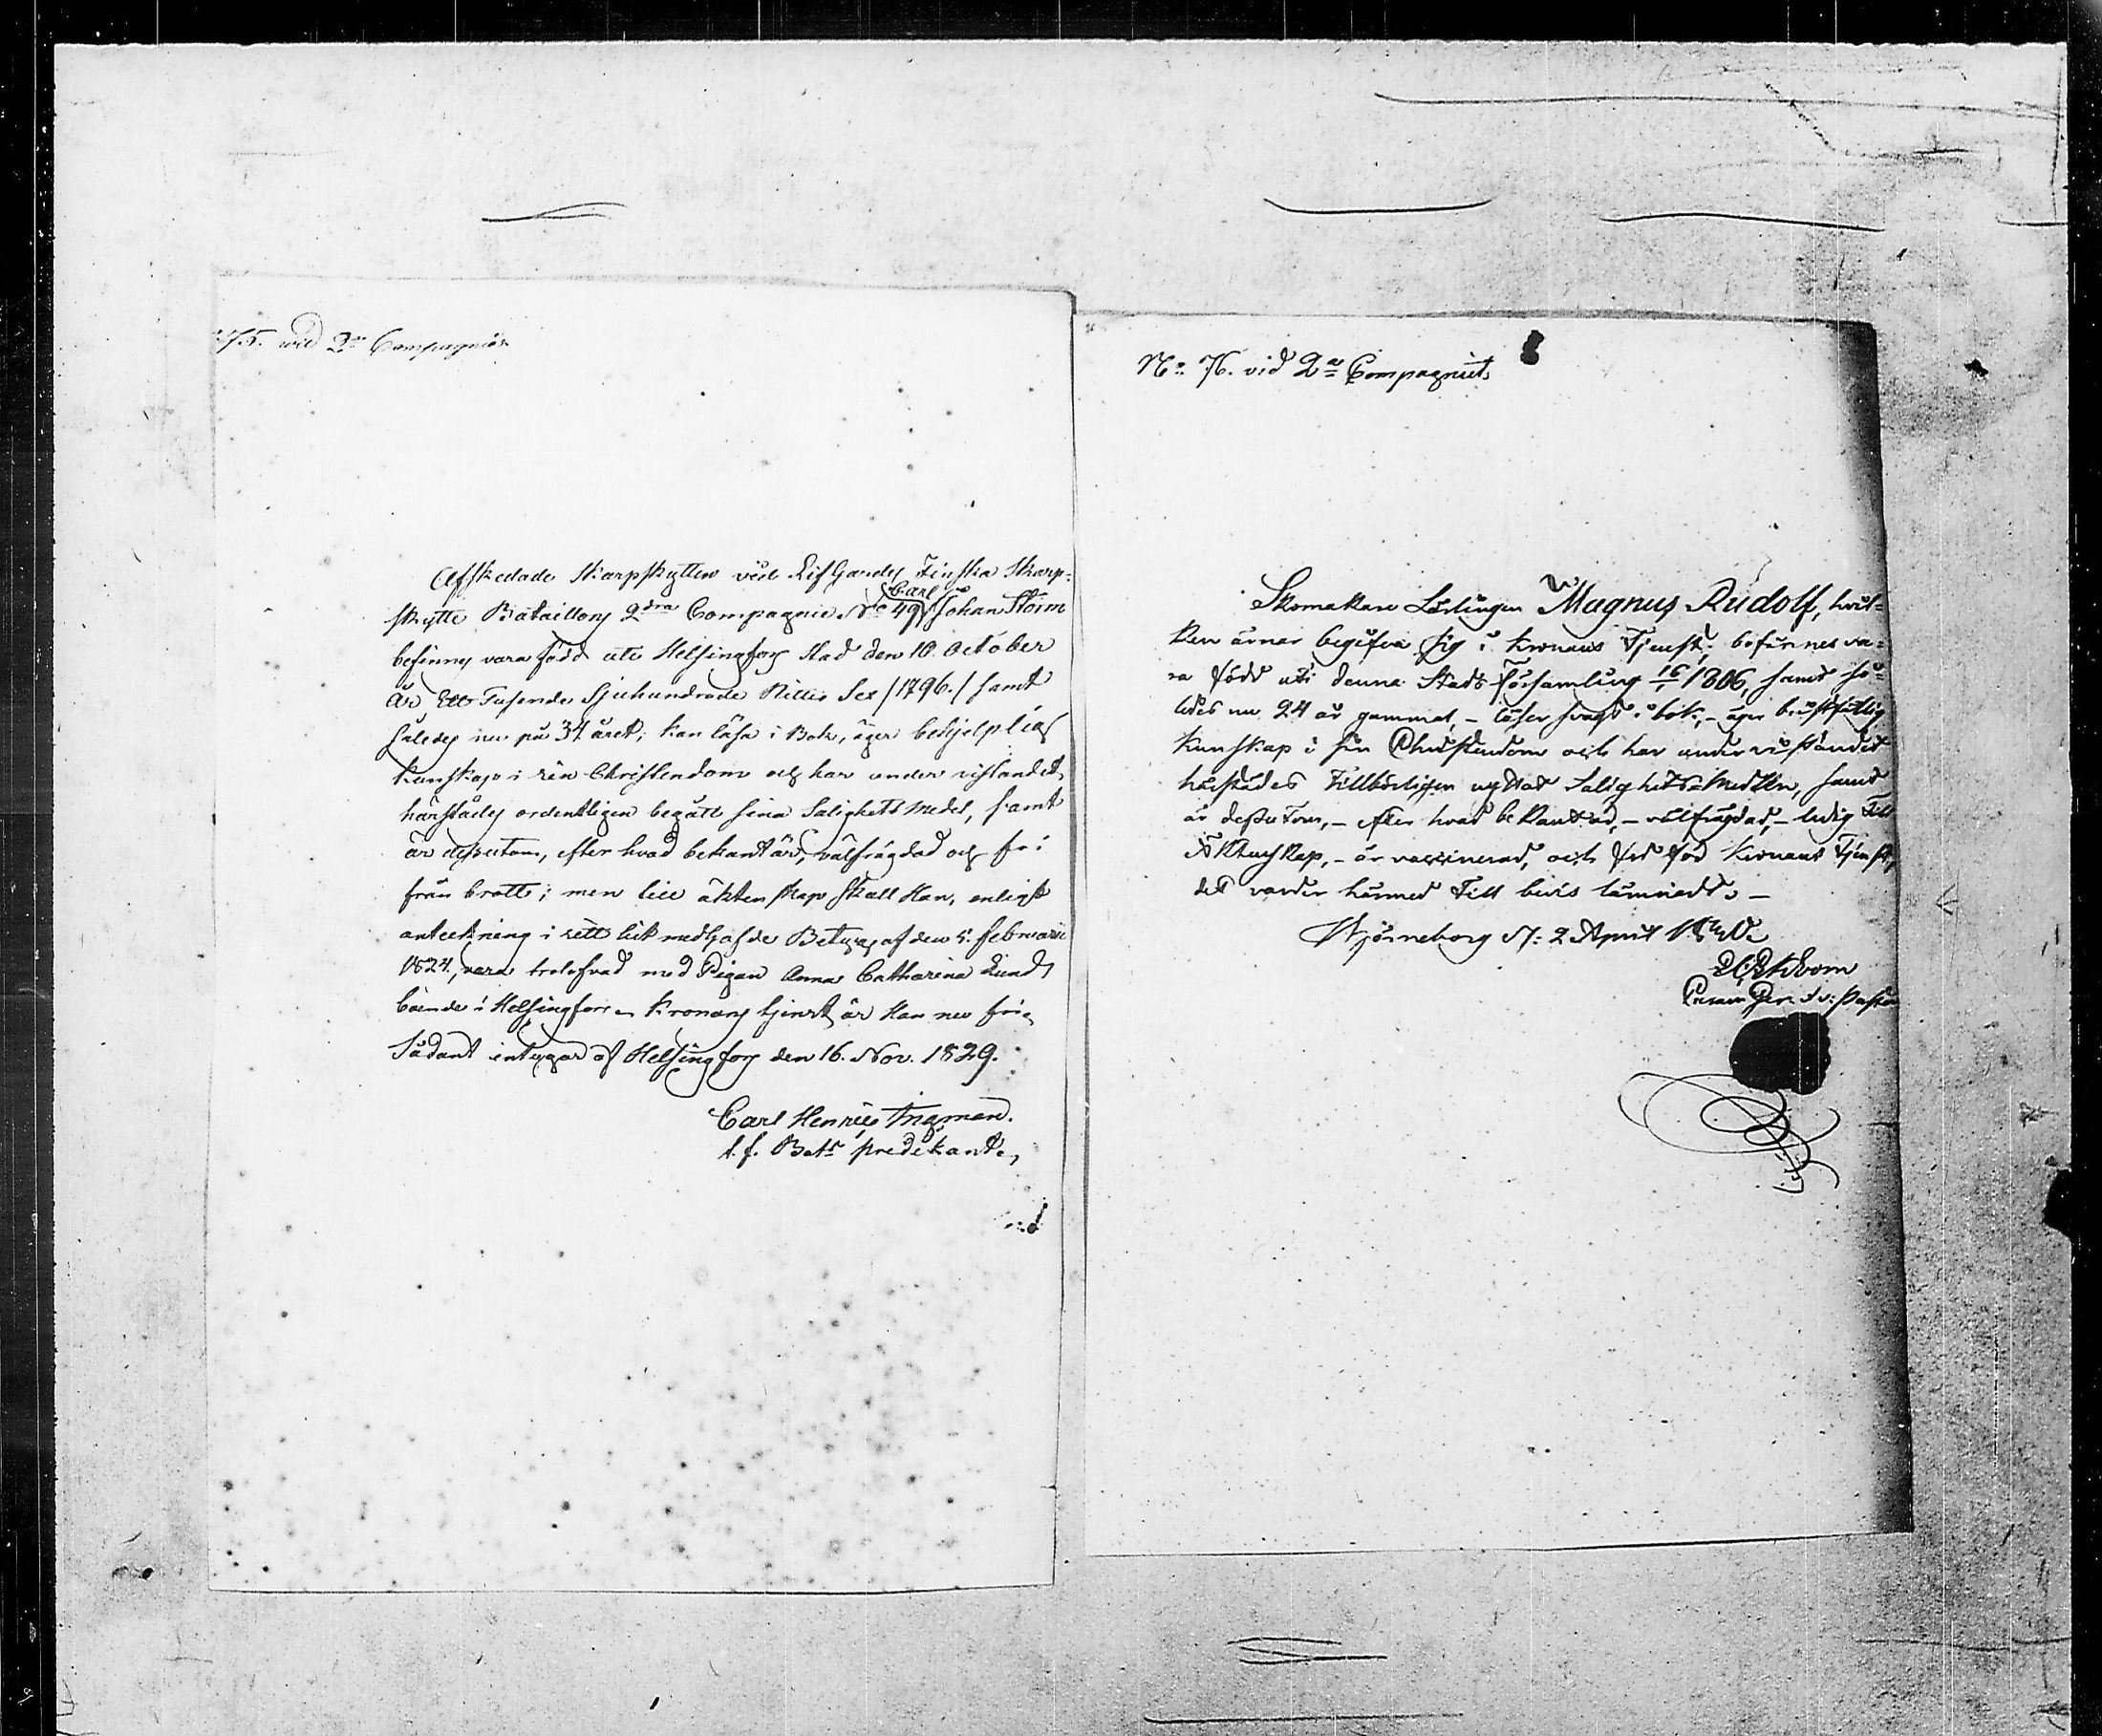 75. wid 2a Compagniet
Afskedade Skarpskytten vid Lif Gardes Finska Skarp-
Carl
skytte Bataillons 2dra Compagnie No 49 Johan Storm
befinnes vara född uti Helsingfors Stad den 10. October
År Ett Tusende Sjuhundrade Nittio Sex /1796./ samt
således nu på 34 året; kan läsa i Bok, äger behjelplig
kunskap i sin Christendom och har under vistandet
härstädes ordentligen begått sina Salighets medel, samt
är dessutom, efter hvad bekant är, välfrägdad och fri
från brott; men till äktenskap skall Han, enligt
anteckning i sitt hit medhafde Betyg af den 5. februarii
1824, vara trolofvad med Pigan Anna Catharina Lund
boende i Helsingfors Kronans tjenst är Han nu fri.
Sådant intygar af Helsingfors den 16. Nov. 1829.
Carl Henric Ingman.
t.f. Bats predikant.
No. 76. vid 2a Compagniet.
Skomakare Lärlingen Magnus Rudolf, hvil-
ken ärnar begifva sig i Kronans Tjenst, befinnes va-
ra född uti denna Stads Församling 16/1 1806, samt så-
ledes nu 24 år gammal, - läser svagt i bok, - äger bristfällig
kunskap i sin Christendom och har under vistandet
härstädes Tillbörligen nyttat Salighets Medlen, samt
är dessutom, - efter hvad bekant är, - välfrägdad, - ledig till
Äktenskap, - är vaccinerad, och fri för Kronans Tjenst,
det varder härmed Till bevis lämnadt. -
Björneborg d. 2 April 1830.